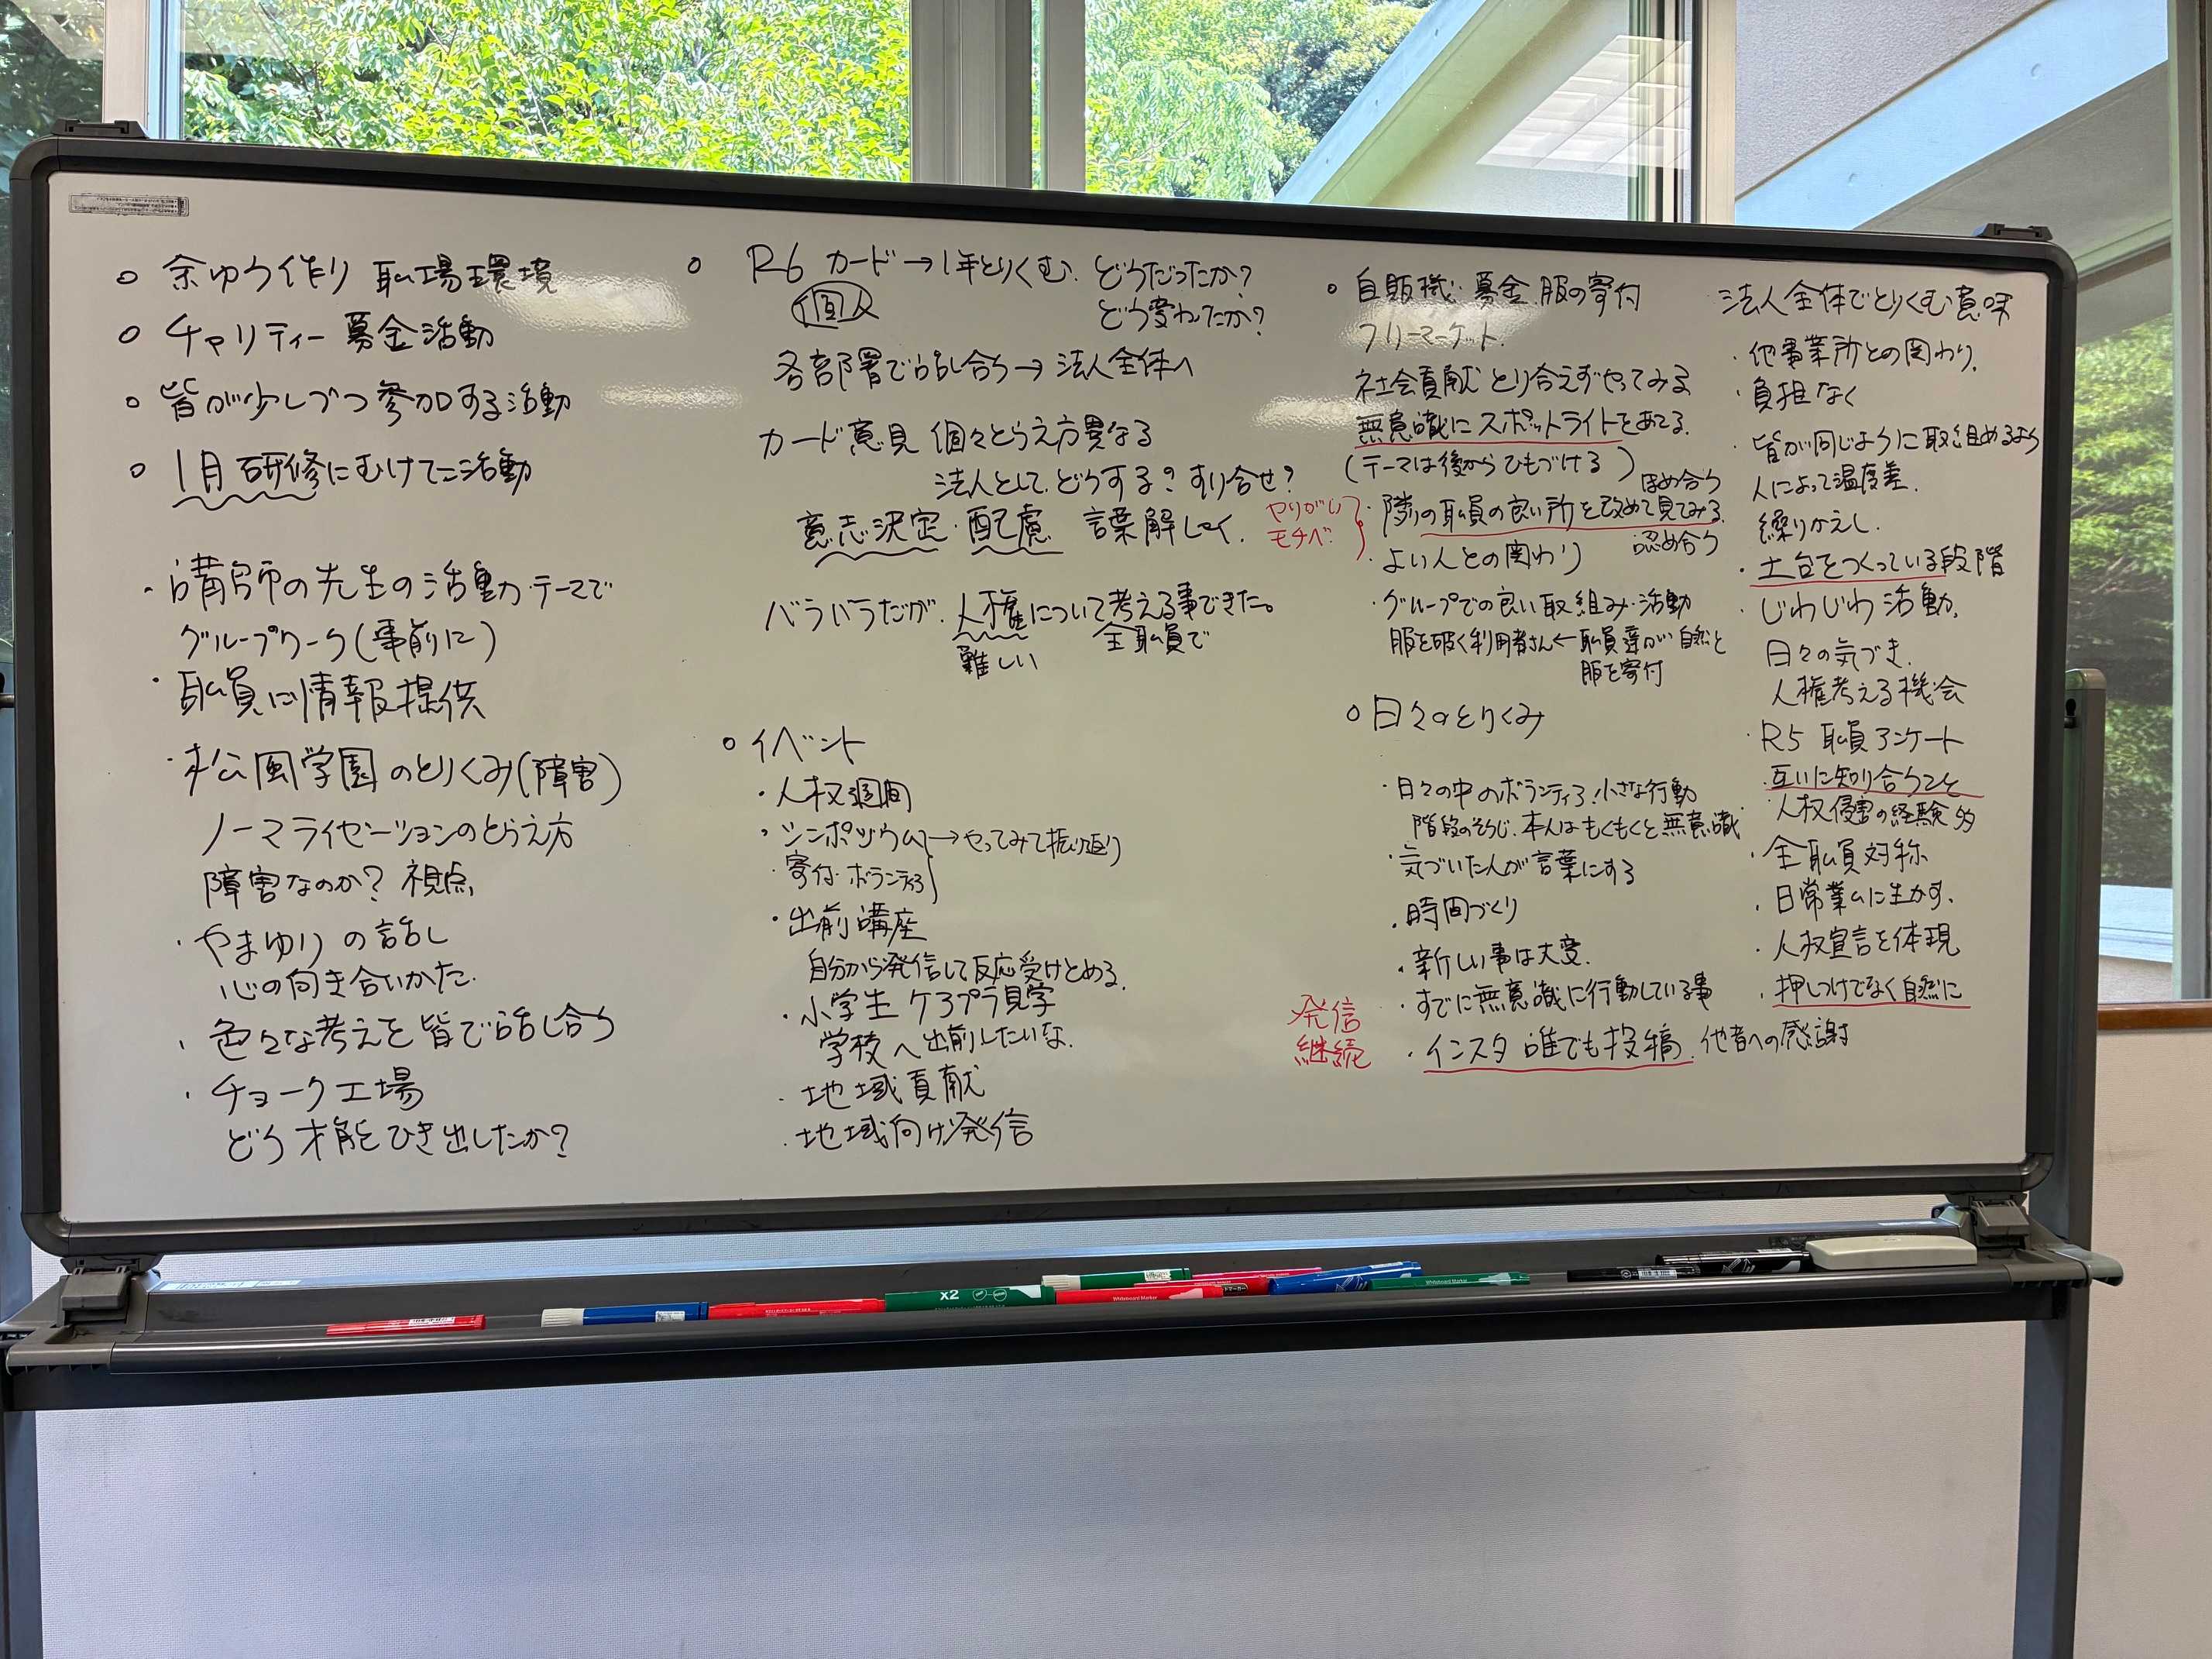 ○ 余ゆう作り 職場環境
○ チャリティー 募金活動
○ 皆が少しづつ参加する活動
○ 1月研修にむけて活動
・講師の先生の活動・テーマで
グループワーク(事前に)
・職員に情報提供
・松風学園のとりくみ(障害)
ノーマライゼーションのとらえ方
障害なのか? 視点
・やまゆりの話し
心の向き合いかた.
・色々な考えを皆で話し合う
・チョーク工場
どう才能をひき出したか?
○ R6 カード→1年とりくむ. どうだったか?
個人 どう変わったか?
各部署で話し合う→法人全体へ
カード意見 個々とらえ方異なる
法人として.どうする? すり合せ?
意志決定・配慮 言葉 解しく.
バラバラだが.人権について考える事できた。
難しい 全職員で
○ イベント
・人权週間
・シンポジウム →やってみて振り返り
・寄付・ボランティア
・出前講座
自分から発信して反応受けとめる.
・小学生 ケアプラ見学
学校へ出前したいな.
・地域貢献
・地域向け発信
○ 自販機・募金 服の寄付
フリーマーケット.
社会貢献 とり合えずやってみる
無意識にスポットライトをあてる.
(テーマは後からひもづける) ほめ合う
やりがい
モチベ.
・隣りの職員の良い所を改めて見てみる.
認め合う
・よい人との関わり
・グループでの良い取組み・活動
服を破く利用者さん←職員達が自然と
服を寄付
○ 日々のとりくみ
・日々の中のボランティア.小さな行動
階段のそうじ.本人はもくもくと無意識
・気づいた人が言葉にする
・時間づくり
・新しい事は大変.
・すでに無意識に行動している事
発信
継続
・インスタ 誰でも投稿.他者への感謝
法人全体でとりくむ意味
・他事業所との関わり.
・負担なく
・皆が同じように取組めるよう
人によって温度差.
繰りかえし.
・土台をつくっている段階
・じわじわ活動.
日々の気づき.
人権考える機会
・R5 職員アンケート
互いに知り合うこと
人权侵害の経験
・全職員対称
・日常業ムに生かす.
・人权宣言を体現
・押しつけでなく自然に
x2
Whiteboard Marker
Whiteboard Marker